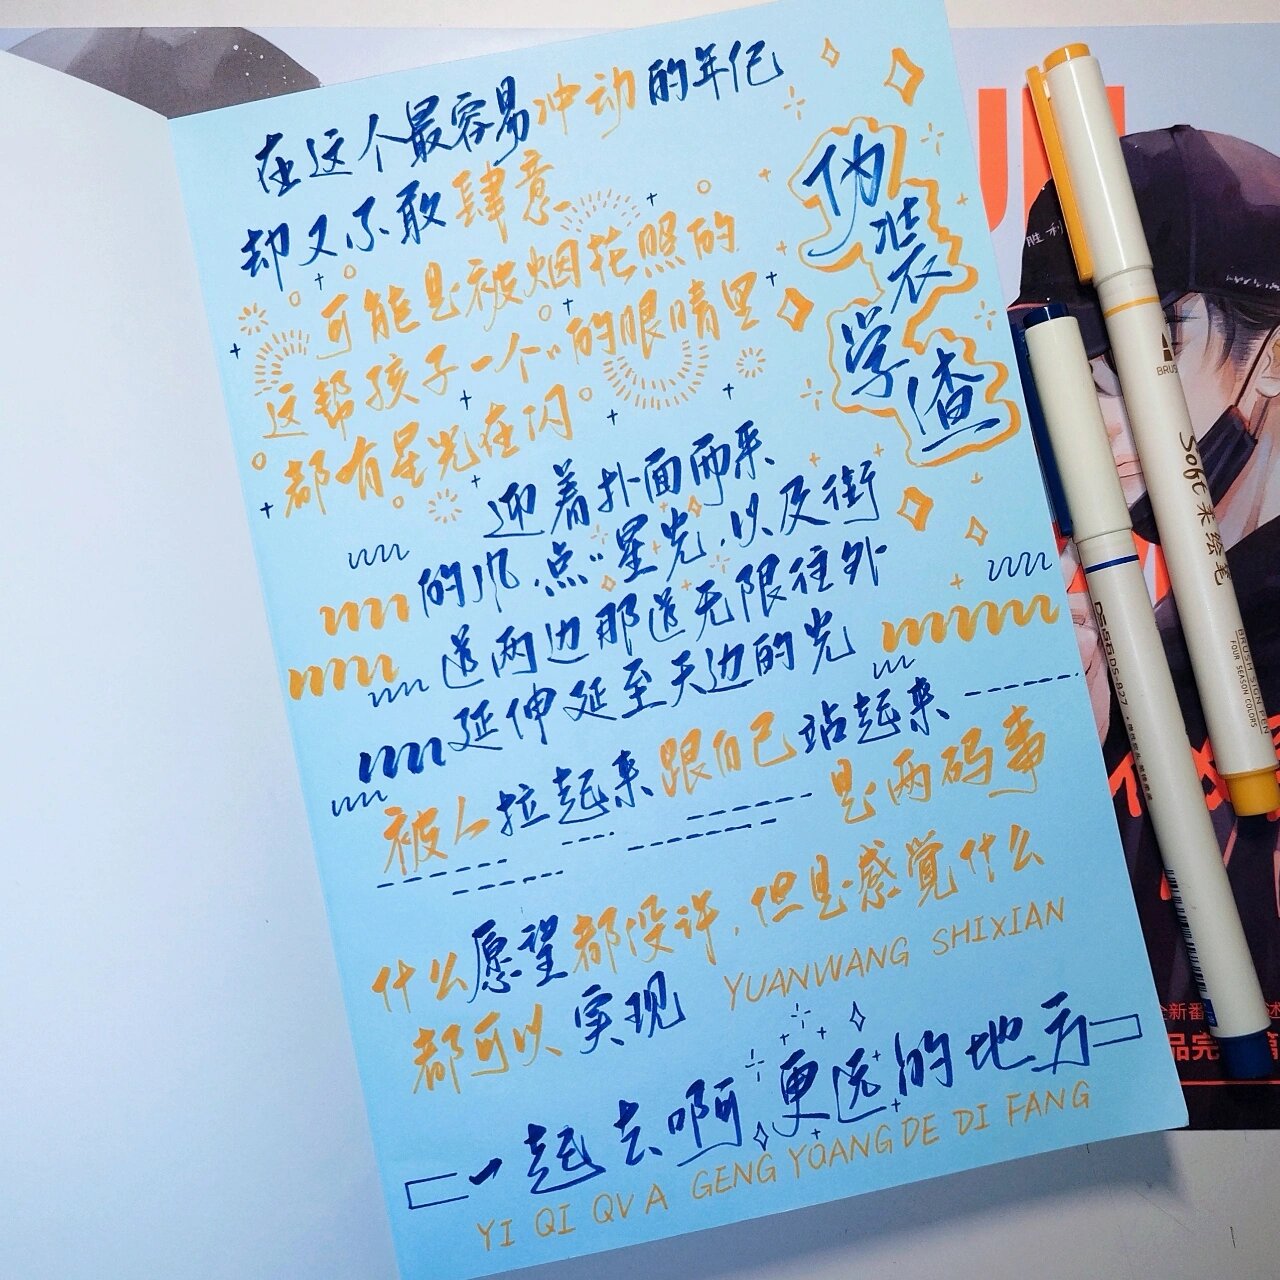 在这个最容易冲动的年纪
却又不敢肆意
可能是被烟花照的
这帮孩子一个"的眼睛里
都有星光在闪
伪装
学渣
迎着扑面而来
的几点"星光,以及街
道两边那道无限往外
延伸延至天边的光
被人拉起来跟自己站起来
是两码事
什么愿望都没许,但是感觉什么
都可以实现
YUANWANG SHIXIAN
一起去啊,更远的地方
YI QI QV A GENG YOANG DE DI FANG
胜利
BRUSH
Soft 柔绘笔
BRUSH SIGN PEN
FOUR SEASON COLORS
DS-827
全新番
述
品完